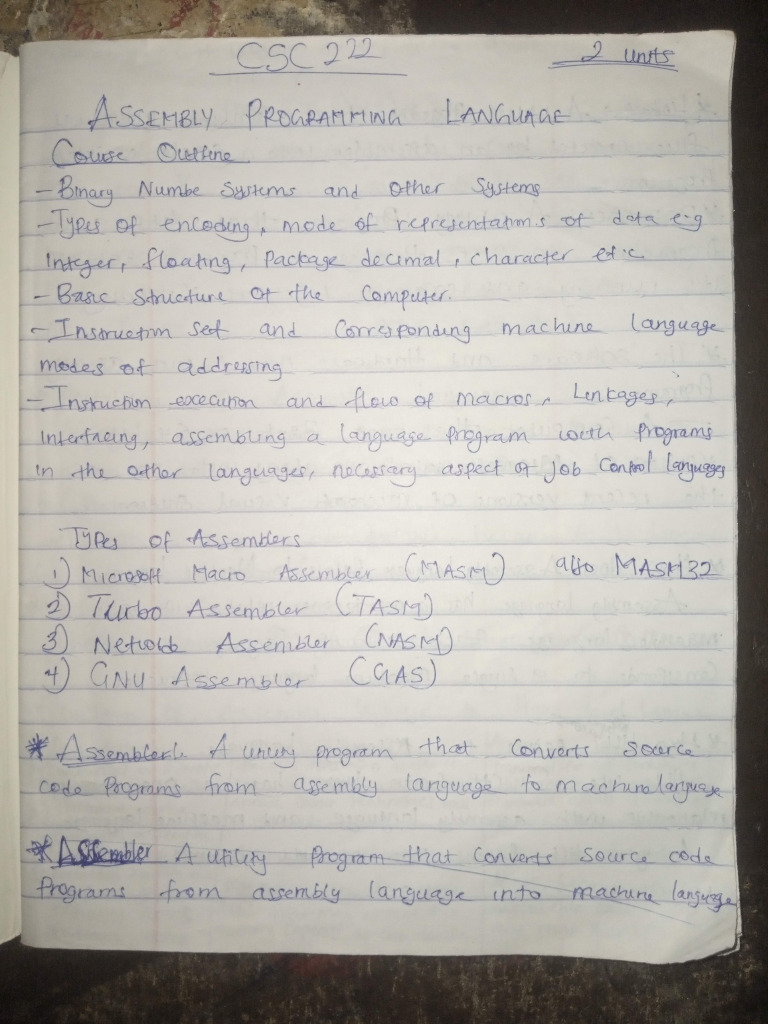 CSC 222 2 units
ASSEMBLY PROGRAMMING LANGUAGE
Course Outline
- Binary Numbe Systems and Other Systems
- Types of encoding, mode of representations of data e.g
Integer, floating, Package decimal, character etc.
- Basic Structure Of the Computer.
- Instruction Set and Corresponding machine language
modes of addressing
- Instruction execution and flow of macros, Linkages,
Interfacing, assembling a language program with Programs
In the other languages, necessary aspect of job Control languages
Types of Assemblers
1) Microsoft Macro Assembler (MASM) also MASM32
2) Turbo Assembler (TASM)
3) Assembler (NASM)
4) GNU Assembler (GAS)
* Assembler:. A program that Converts Source
code Programs from assembly language to machine language
* Assembler A utility Program that Converts Source code
Programs from assembly language into machine language